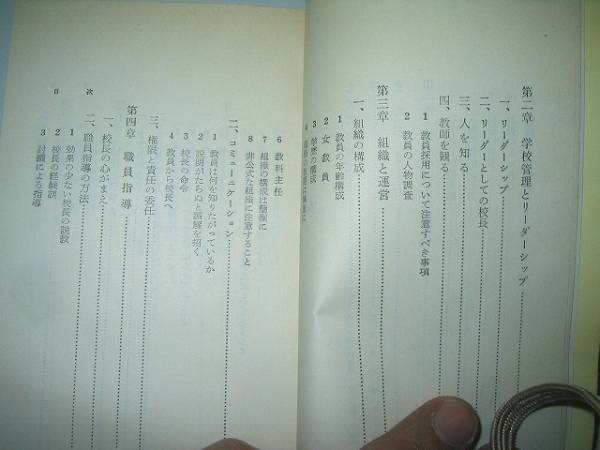 第二章 学校管理とリーダーシップ
一、リーダーシップ
二、リーダーとしての校長
三、人を知る
四、教師を観る
1 教員採用について注意すべき事項
2 教員の人物調査
第三章 組織と運営
一、組織の構成
1 教員の年齢構成
2 女教員
3 学歴の構成
6 教科主任
7 組織の構成は簡潔に
8 非公式な組織に注意すること
二、コミューニケーション
1 教員は何を知りたがっているか
2 説明がたらぬと誤解を招く
3 校長の命令
4 教員から校長へ
三、権限と責任の委任
第四章 職員指導
一、校長の心がまえ
二、職員指導の方法
1 効果の少ない校長の説教
2 校長の経験談
3 討議による指導
目次